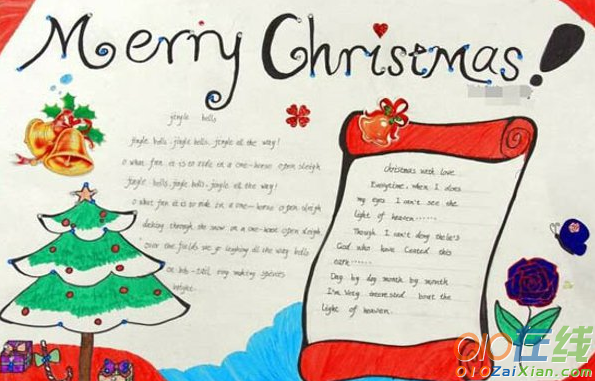 Merry Christmas!
jingle bells
jingle bells, jingle bells, jingle all the way!
o what fun it is to ride in a one-horse open sleigh
jingle bells, jingle bells, jingle all the way!
o what fun it is to ride in a one-horse open sleigh
dashing through the snow in a one-horse open sleigh
over the fields we go laughing all the way bells
on bob-tail ring making spirits
bright.
Christmas with love
Everytime, when I
my eyes I can't see the
light of heaven……
Though I can't deny
God who have this
Day by day month by month
I'm Very the
light of heaven.
010在线
010ZaiXian.com